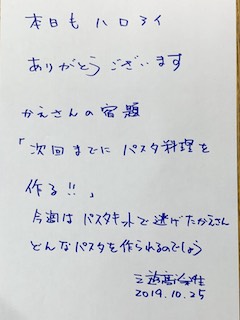 本日もハロアイ
ありがとうございます
かえさんの宿題
「次回までに パスタ料理を
作る!!」
今週は パスタキットで逃げたかえさん
どんなパスタを作られるのでしょう
三遊亭
2019.10.25